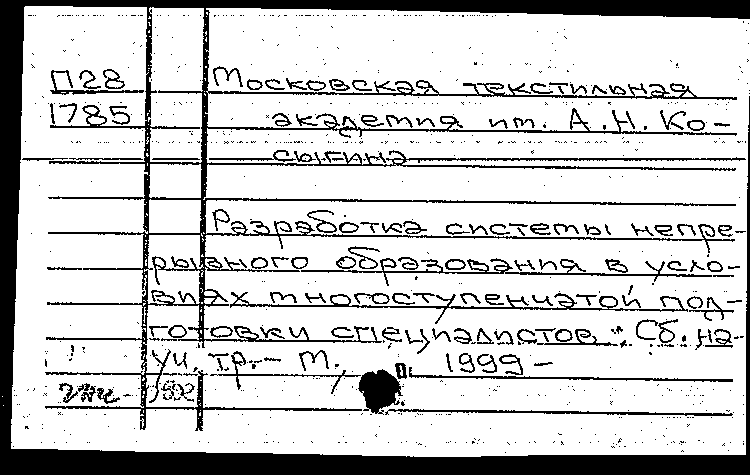 П28 Московская текстильная
1785 академия им. А.Н. Ко-
сыгина
Разработка системы непре-
рывного образования в усло-
виях многоступенчатой под-
готовки специалистов: Сб. на-
уч. тр.- М., 1999 -